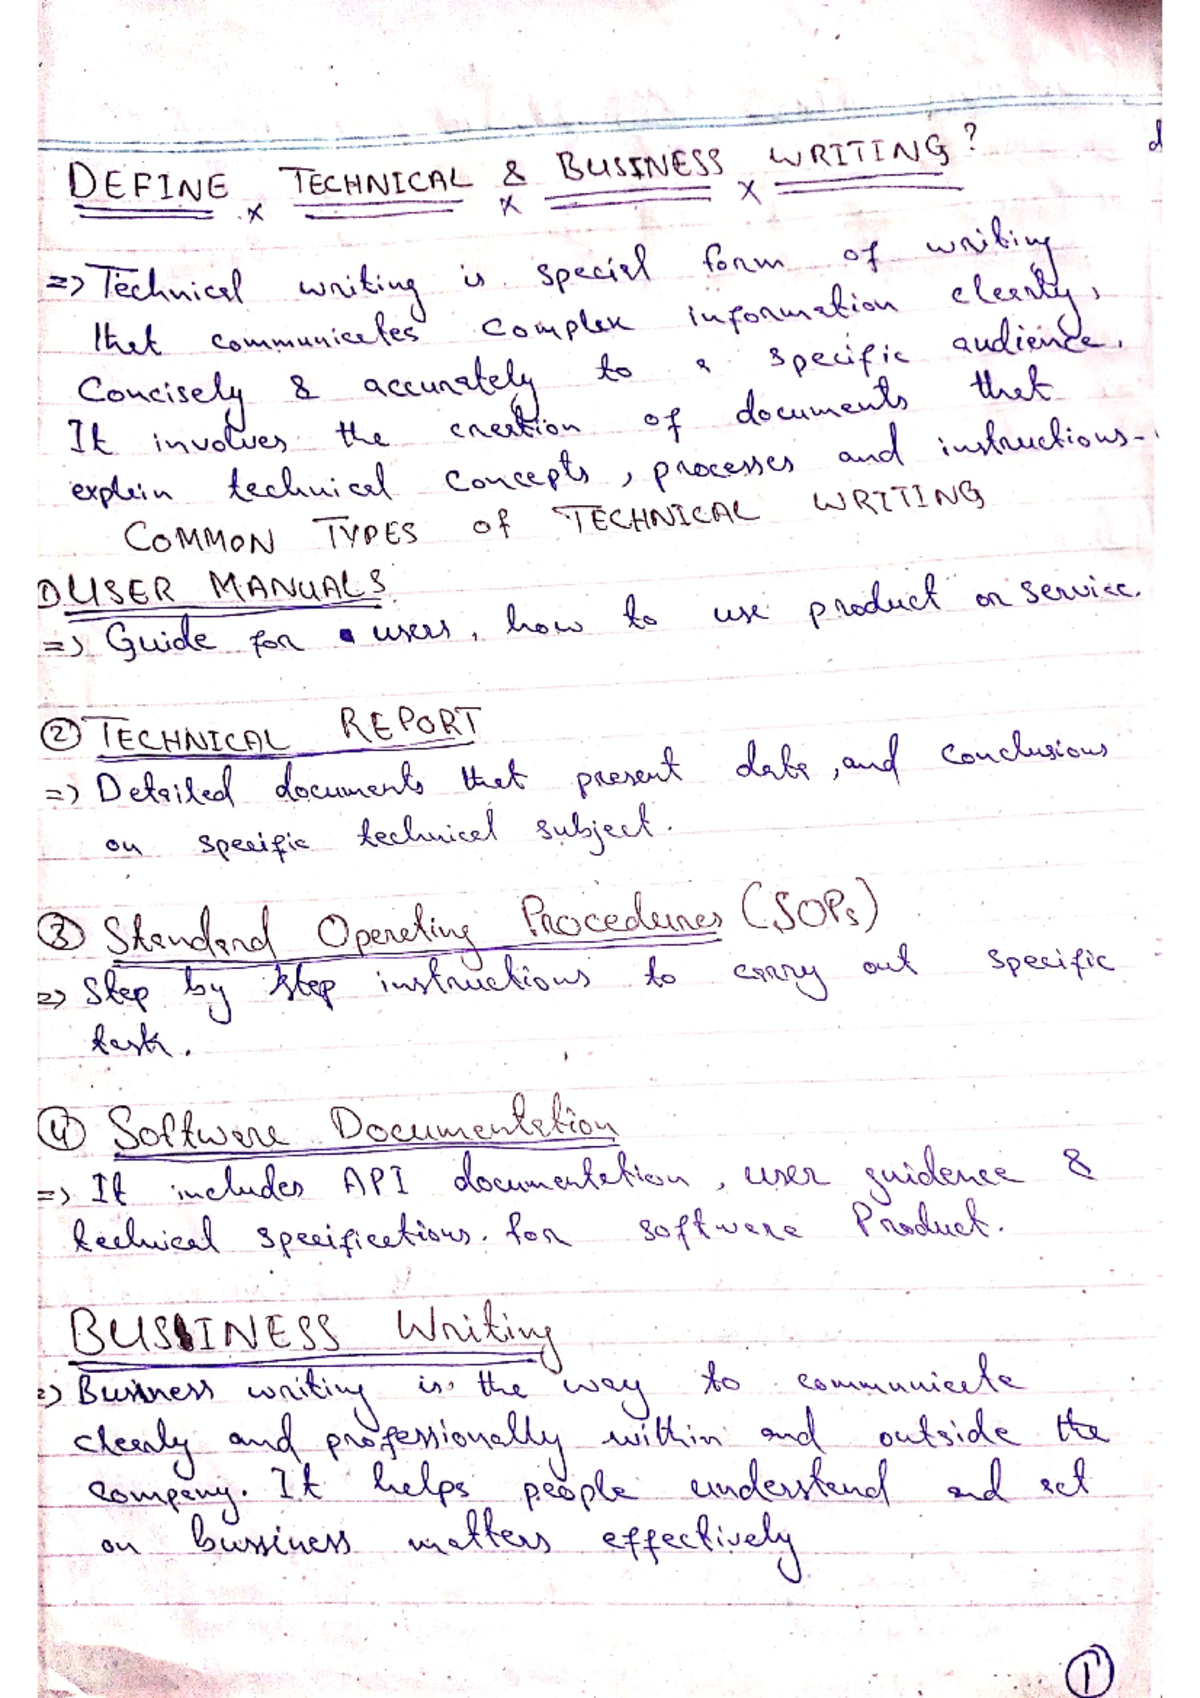 DEFINE TECHNICAL & BUSINESS WRITING?
=> Technical writing is special form of writing
that communicates complex information clearly,
Concisely & accurately to a specific audience.
It involves the creation of documents that
explain technical concepts, processes and instructions-
COMMON TYPES of TECHNICAL WRITING
1) USER MANUALS
=> Guide for users, how to use product or service.
② TECHNICAL REPORT
=> Detailed documents that present data, and conclusions
on specific technical subject.
③ Standard Operating Procedures (SOPs)
=> Step by step instructions to carry out specific
task.
④ Software Documentation
=> It includes API documentation, user guidence &
technical specifications. for software Product.
BUSINESS Writing
=> Business writing is the way to communicate
clearly and professionally within and outside the
company. It helps people understand and act
on bussiness matters effectively
①